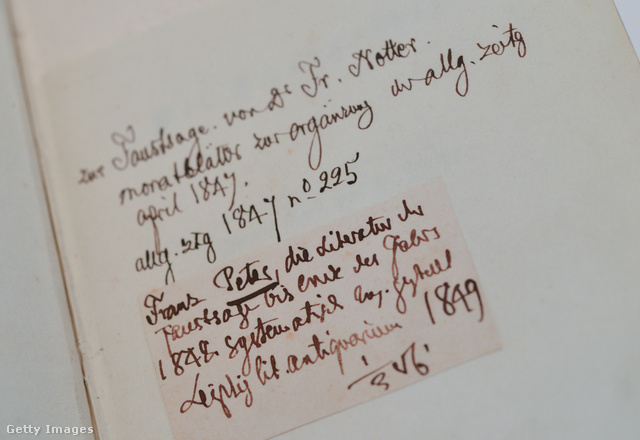 zur Faustsage. von Dr Fr. Notter.
monatblätter zur ergänzung der allg. zeitg
april 1847.
allg. ztg 1847 no 225
Franz Peter, die Literatur der
Faustsage bis ende des Jahrs
1848. systematisch zus. gestellt
Leipzig lit. antiquarium 1849
Getty Images